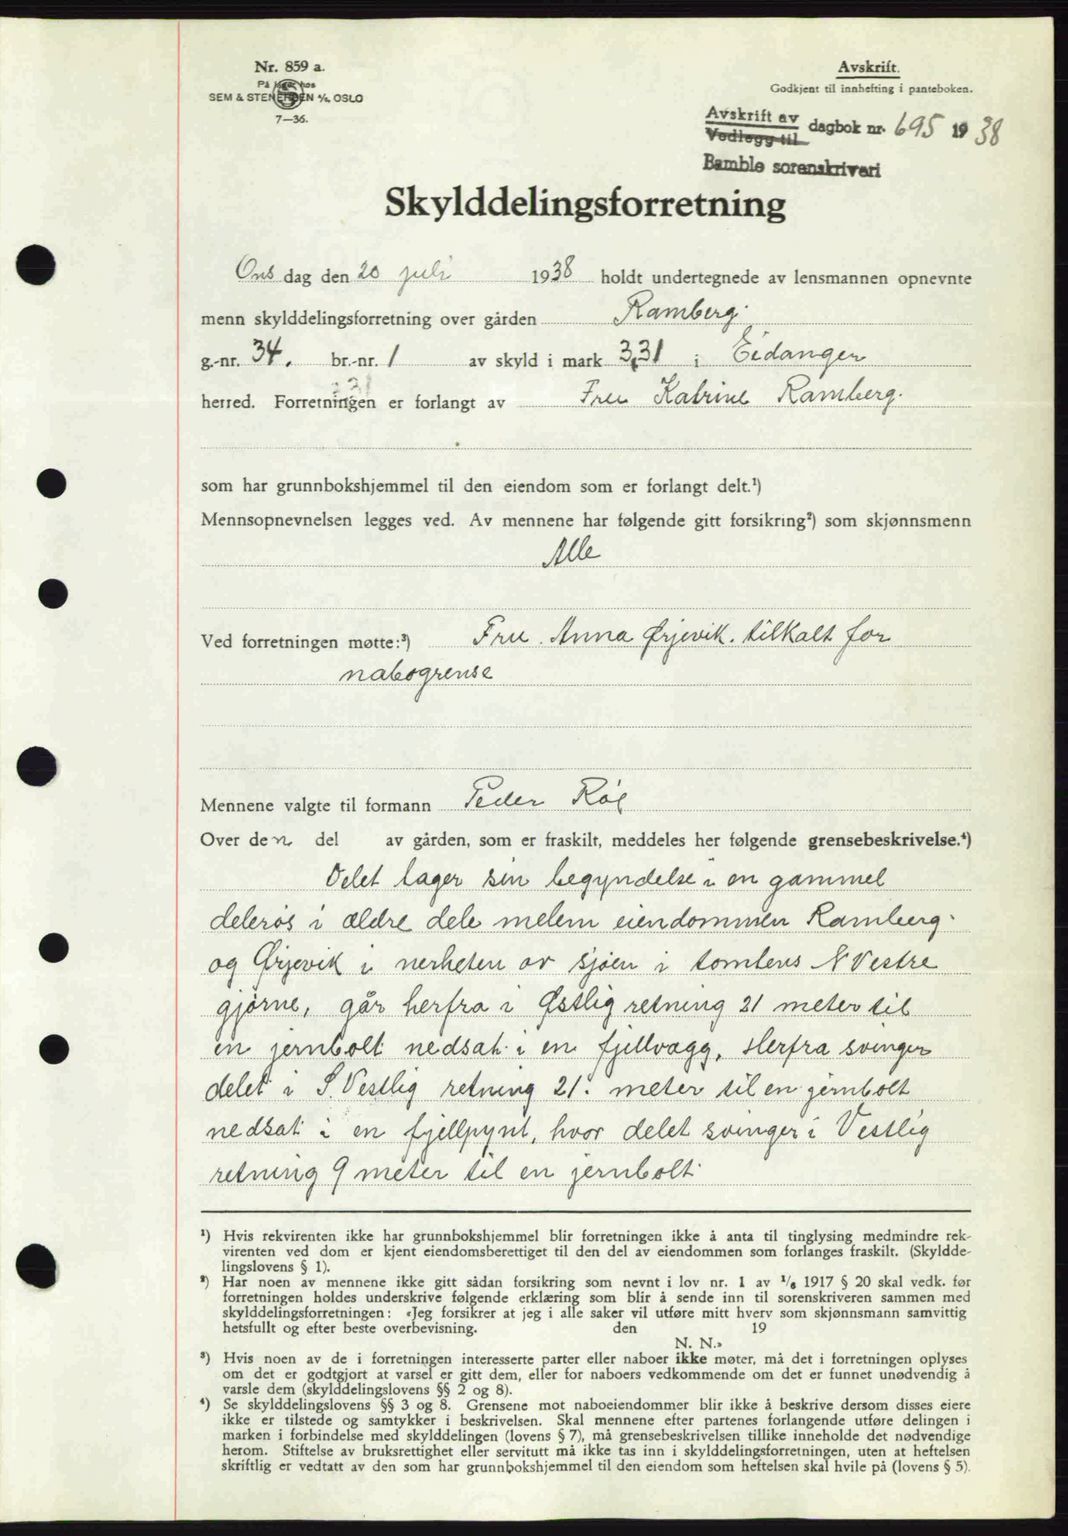 Nr. 859 a.
På lager hos
SEM & STENERSEN A/S, OSLO
7—36.
Avskrift.
Godkjent til innhefting i panteboken.
Avskrift av
Vedlegg til
dagbok nr. 695 1938
Bamble sorenskriveri
Skylddelingsforretning
Ons dag den 20 juli 1938 holdt undertegnede av lensmannen opnevnte
menn skylddelingsforretning over gården Ramberg.
g.-nr. 34. br.-nr. 1 av skyld i mark 3,31 i Eidanger
herred. Forretningen er forlangt av Fru Katrine Ramberg.
som har grunnbokshjemmel til den eiendom som er forlangt delt.¹)
Mennsopnevnelsen legges ved. Av mennene har følgende gitt forsikring²) som skjønnsmenn
Alle
Ved forretningen møtte:³) Fru. Anna Ørjevik. tilkalt for
nabogrense
Mennene valgte til formann Peder
Over den del av gården, som er fraskilt, meddeles her følgende grensebeskrivelse.⁴)
Delet tager sin begyndelse i en gammel
delerøs i ældre dele melem eiendommen Ramberg.
og Ørjevik i nerheten av sjøen i tomtens N Vestre
gjørne, går herfra i Østlig retning 21 meter til
en jernbolt nedsat i en fjellvægg, Herfra svinger
delet i S. Vestlig retning 21. meter til en jernbolt
nedsat i en fjellpynt, hvor delet svinger i Vestlig
retning 9 meter til en jernbolt.
¹) Hvis rekvirenten ikke har grunnbokshjemmel blir forretningen ikke å anta til tinglysing medmindre rek-
virenten ved dom er kjent eiendomsberettiget til den del av eiendommen som forlanges fraskilt. (Skyldde-
lingslovens § 1).
²) Har noen av mennene ikke gitt sådan forsikring som nevnt i lov nr. 1 av 1/6 1917 § 20 skal vedk. før
forretningen holdes underskrive følgende erklæring som blir å sende inn til sorenskriveren sammen med
skylddelingsforretningen: «Jeg forsikrer at jeg i alle saker vil utføre mitt hverv som skjønnsmann samvittig
hetsfullt og efter beste overbevisning. den 19
N. N.»
³) Hvis noen av de i forretningen interesserte parter eller naboer ikke møter, må det i forretningen oplyses
om det er godtgjort at varsel er gitt dem, eller for naboers vedkommende om det er funnet unødvendig å
varsle dem (skylddelingslovens §§ 2 og 8).
⁴) Se skylddelingslovens §§ 3 og 8. Grensene mot naboeiendommer blir ikke å beskrive dersom disses eiere
ikke er tilstede og samtykker i beskrivelsen. Skal mennene efter partenes forlangende utføre delingen i
marken i forbindelse med skylddelingen (lovens § 7), må grensebeskrivelsen tillike inneholde det nødvendige
herom. Stiftelse av bruksrettighet eller servitutt må ikke tas inn i skylddelingsforretningen, uten at heftelsen
skriftlig er vedtatt av den som har grunnbokshjemmel til den eiendom som heftelsen skal hvile på (lovens § 5).